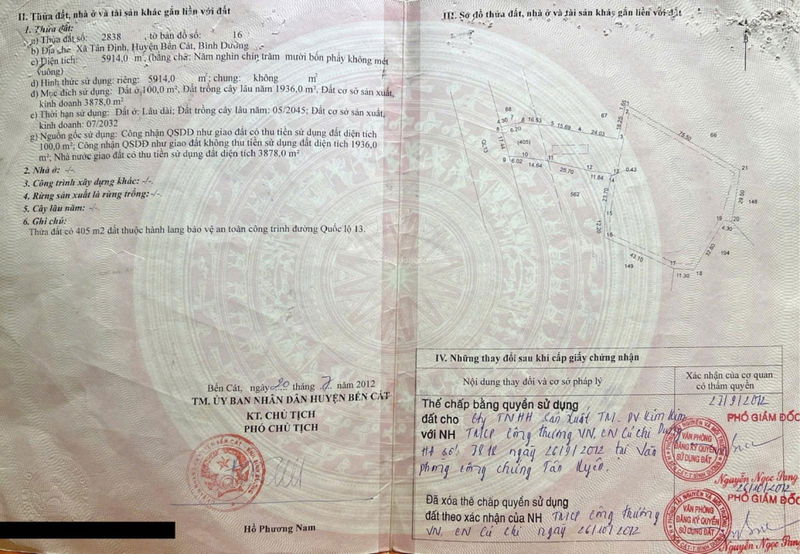 II. Thửa đất, nhà ở và tài sản khác gắn liền với đất
1. Thửa đất:
a) Thửa đất số: 2838 , tờ bản đồ số: 16
b) Địa chỉ: Xã Tân Định, Huyện Bến Cát, Bình Dương
c) Diện tích: 5914,0 m², (bằng chữ: Năm nghìn chín trăm mười bốn phẩy không mét vuông)
d) Hình thức sử dụng: riêng: 5914,0 m²; chung: không m²
đ) Mục đích sử dụng: Đất ở 100,0 m², Đất trồng cây lâu năm 1936,0 m², Đất cơ sở sản xuất,
kinh doanh 3878,0 m²
e) Thời hạn sử dụng: Đất ở: Lâu dài; Đất trồng cây lâu năm: 05/2045; Đất cơ sở sản xuất,
kinh doanh: 07/2032
g) Nguồn gốc sử dụng: Công nhận QSDĐ như giao đất có thu tiền sử dụng đất diện tích
100,0 m²; Công nhận QSDĐ như giao đất không thu tiền sử dụng đất diện tích 1936,0
m²; Nhà nước giao đất có thu tiền sử dụng đất diện tích 3878,0 m²
2. Nhà ở: -/-
3. Công trình xây dựng khác: -/-
4. Rừng sản xuất là rừng trồng: -/-
5. Cây lâu năm: -/-
6. Ghi chú:
Thửa đất có 405 m2 đất thuộc hành lang bảo vệ an toàn công trình đường Quốc lộ 13.
Bến Cát, ngày 20 tháng 7 năm 2012
TM. ỦY BAN NHÂN DÂN HUYỆN BẾN CÁT
KT. CHỦ TỊCH
PHÓ CHỦ TỊCH
Hồ Phương Nam
III. Sơ đồ thửa đất, nhà ở và tài sản khác gắn liền với đất
QL13
68
67
66
4.30
7
8
16.53
6.20
17.44
(405)
5
15.69
4
24.03
3
18.25
2
1.50
75.50
21
29.50
148
20
19
4.30
194
32.60
18
17
11.30
43.70
149
16
12.20
15
23.70
14
13
0.43
12
11.84
25.70
11
14.64
10
6.02
9
562
IV. Những thay đổi sau khi cấp giấy chứng nhận
Nội dung thay đổi và cơ sở pháp lý
Xác nhận của cơ quan
có thẩm quyền
Thế chấp bằng quyền sử dụng
đất cho Cty TNHH Sản Xuất TM. DV Kim Kim
với NH TMCP Công thương VN, CN Củ Chi
HĐ số: ngày 26/9/2012 tại Văn
phòng công chứng Tân
27/9/2012
PHÓ GIÁM ĐỐC
VĂN PHÒNG
ĐĂNG KÝ QUYỀN
SỬ DỤNG ĐẤT
Nguyễn Ngọc
Đã xóa thế chấp quyền sử dụng
đất theo xác nhận của NH TMCP Công thương
VN, CN Củ Chi ngày 26/10/2012
26/10/2012
PHÓ GIÁM ĐỐC
VĂN PHÒNG
ĐĂNG KÝ QUYỀN
SỬ DỤNG ĐẤT
Nguyễn Ngọc